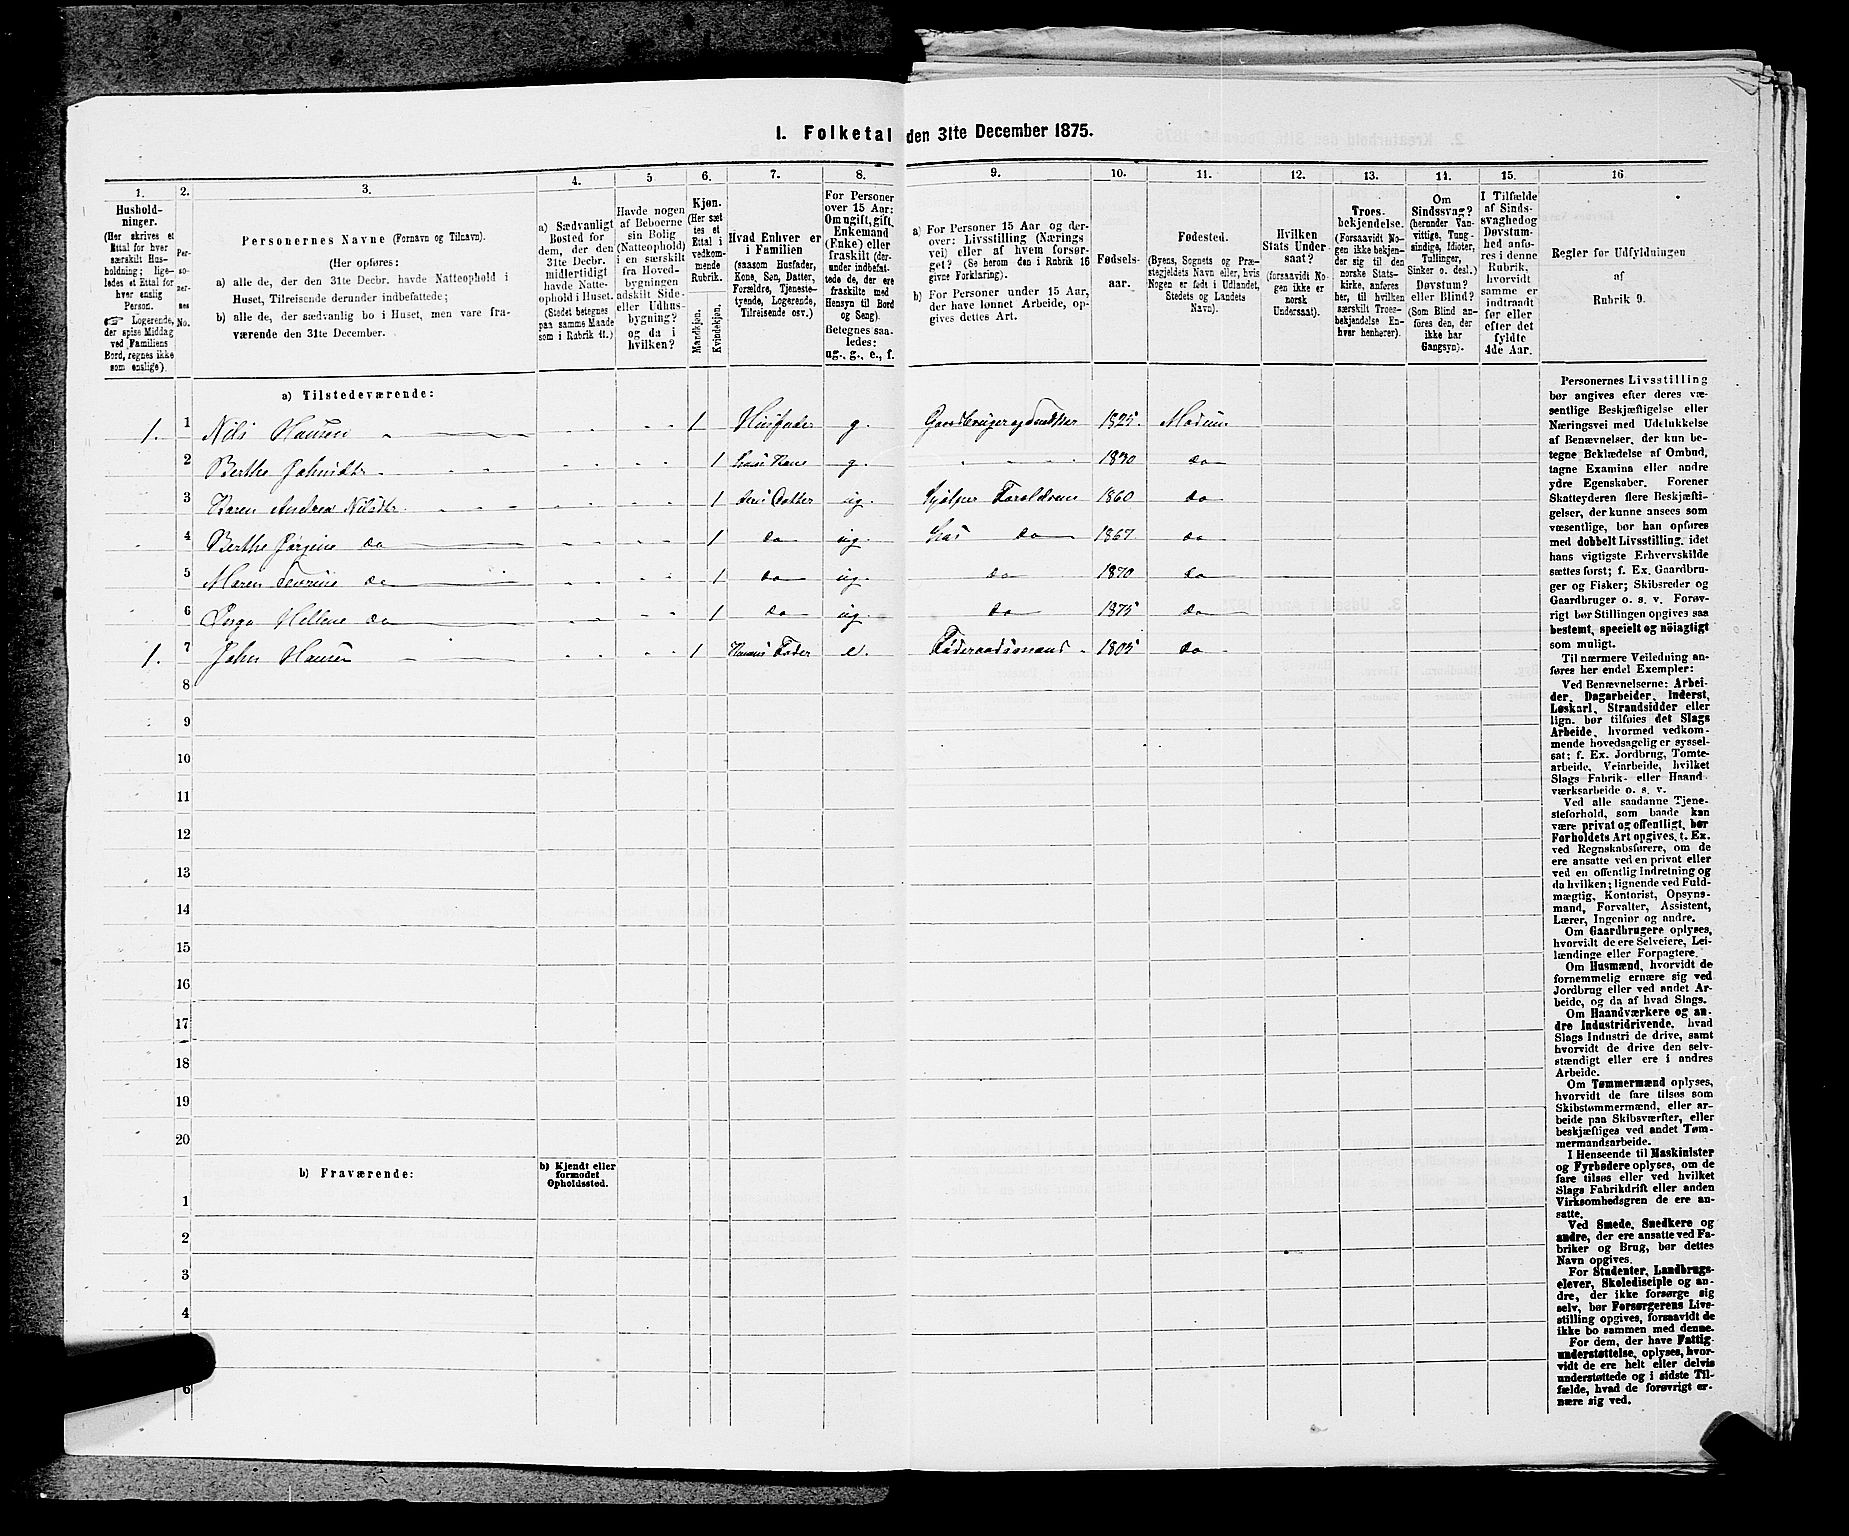 I. Folketal den 31te December 1875.
1. 2. 3. 4. 5 6. 7. 8. 9. 10. 11. 12. 13. 14. 15. 16
Hushold-
ninger.
(Her skrives et
Ettal for hver
særskilt Hus-
holdning; lige-
ledes et Ettal for
hver enslig
Person.
☞ Logerende,
der spise Middag
ved Familiens
Bord, regnes ikke
som enslige).
Per-
so-
ner-
nes
No.
Personernes Navne (Fornavn og Tilnavn).
(Her opføres:
a) alle de, der den 31te Decbr. havde Natteophold i
Huset, Tilreisende derunder indbefattede;
b) alle de, der sædvanlig bo i Huset, men vare fra-
værende den 31te December.
a) Sædvanligt
Bosted for
dem, der den
31te Decbr.
midlertidigt
havde Natte-
ophold i Huset.
(Stedet betegnes
paa samme Maade
som i Rubrik 11.)
Havde nogen
af Beboerne
sin Bolig
(Natteophold)
i en særskilt
fra Hoved-
bygningen
adskilt Side-
eller Udhus-
bygning?
og da i
hvilken?
Kjøn.
(Her sæt-
tes et
Ettal i
vedkom-
mende
Rubrik.
Mandkjøn.
Kvindekjøn.
Hvad Enhver er
i Familien
(saasom Husfader,
Kone, Søn, Datter,
Forældre, Tjeneste-
tyende, Logerende,
Tilreisende osv.)
For Personer
over 15 Aar:
Om ugift, gift,
Enkemand
(Enke) eller
fraskilt (der-
under indbefat-
tede de, der ere
fraskilte med
Hensyn til Bord
og Seng).
Betegnes saa-
ledes:
ug., g., e., f.
a) For Personer 15 Aar og der-
over: Livsstilling (Nærings
vei) eller af hvem forsør-
get? (Se herom den i Rubrik 16
givne Forklaring).
b) For Personer under 15 Aar,
der have lønnet Arbeide, op-
gives dettes Art.
Fødsels-
aar.
Fødested.
(Byens, Sognets og Præ-
stegjeldets Navn eller, hvis
Nogen er født i Udlandet,
Stedets og Landets
Navn).
Hvilken
Stats Under-
saat?
(forsaavidt No-
gen ikke er
norsk
Undersaat).
Troes-
bekjendelse.
(Forsaavidt No-
gen ikke bekjen-
der sig til den
norske Stats-
kirke, anføres
her, til hvilken
særskilt Troes-
bekjendelse En-
hver henhører).
Om
Sindssvag?
(herunder Van-
vittige, Tung-
sindige, Idioter,
Tullinger,
Sinker o. desl.)
Døvstum?
eller Blind?
(Som Blind an-
føres den, der
ikke har
Gangsyn).
I Tilfælde
af Sinds-
svaghed og
Døvstum-
hed anfø-
res i denne
Rubrik,
hvorvidt
samme er
indtraadt
før eller
efter det
fyldte
4de Aar.
Regler for Udfyldningen
af
Rubrik 9.
a) Tilstedeværende:
1. 1 Nils Hansen 1 Husfader g. 1825 Modum
2 Berthe 1 Hans Kone g. 1830 do
3 Karen Andrea 1 Datter ug. Hjælper Forældrene 1860 do
4 Berthe Jørgine do 1 do ug. Hos do 1867 do
5 Maren do 1 do ug. do 1870 do
6 Hellene do 1 do ug. do 1875 do
1. 7 John Hansen 1 Fader e. Føderaadsmand 1805 do
8
9
10
11
12
13
14
15
16
17
18
19
20
b) Fraværende:
b) Kjendt eller
formodet
Opholdssted.
1
2
3
4
6
Personernes Livsstilling
bør angives efter deres væ-
sentlige Beskjæftigelse eller
Næringsvei med Udelukkelse
af Benævnelser, der kun be-
tegne Beklædelse af Ombud,
tagne Examina eller andre
ydre Egenskaber. Forener
Skatteyderen flere Beskjæfti-
gelser, der kunne ansees som
væsentlige, bør han opføres
med dobbelt Livsstilling, idet
hans vigtigste Erhvervskilde
sættes først; f. Ex. Gaardbru-
ger og Fisker; Skibsreder og
Gaardbruger o. s. v. Forøv-
rigt bør Stillingen opgives saa
bestemt, specielt og nöiagtigt
som muligt.
Til nærmere Veiledning an-
føres her endel Exempler:
Ved Benævnelserne: Arbei-
der, Dagarbeider, Inderst,
Løskarl, Strandsidder eller
lign. bør tilføies det Slags
Arbeide, hvormed vedkom-
mende hovedsagelig er syssel-
sat; f. Ex. Jordbrug, Tomte-
arbeide, Veiarbeide, hvilket
Slags Fabrik- eller Haand-
værksarbeide o. s. v.
Ved alle saadanne Tjene-
steforhold, som baade kan
være privat og offentligt, bør
Forholdets Art opgives, t. Ex.
ved Regnskabsførere, om de
ere ansatte ved en privat eller
ved en offentlig Indretning og
da hvilken; lignende ved Fuld-
mægtig, Kontorist, Opsyns-
mand, Forvalter, Assistent,
Lærer, Ingeniør og andre.
Om Gaardbrugere oplyses,
hvorvidt de ere Selveiere, Lei-
lændinge eller Forpagtere.
Om Husmænd, hvorvidt de
fornemmelig ernære sig ved
Jordbrug eller ved andet Ar-
beide, og da af hvad Slags.
Om Haandværkere og an-
dre Industridrivende, hvad
Slags Industri de drive, samt
hvorvidt de drive den selv-
stændigt eller ere i andres
Arbeide.
Om Tømmermænd oplyses,
hvorvidt de fare tilsøs som
Skibstømmermænd, eller ar-
beide paa Skibsværfter, eller
beskjæftiges ved andet Tøm-
mermandsarbeide.
I Henseende til Maskinister
og Fyrbødere oplyses, om de
fare tilsøs eller ved hvilket
Slags Fabrikdrift eller anden
Virksomhedsgren de ere an-
satte.
Ved Smede, Snedkere og
andre, der ere ansatte ved Fa-
briker og Brug, bør dettes
Navn opgives.
For Studenter, Landbrugs-
elever, Skoledisciple og an-
dre, der ikke forsørge sig
selv, bør Forsørgerens Livs-
stilling opgives, forsaavidt de
ikke bo sammen med denne.
For dem, der have Fattig-
understøttelse, oplyses, hvor-
vidt de ere helt eller delvis
understøttede og i sidste Til-
fælde, hvad de forøvrigt er-
nære sig ved.